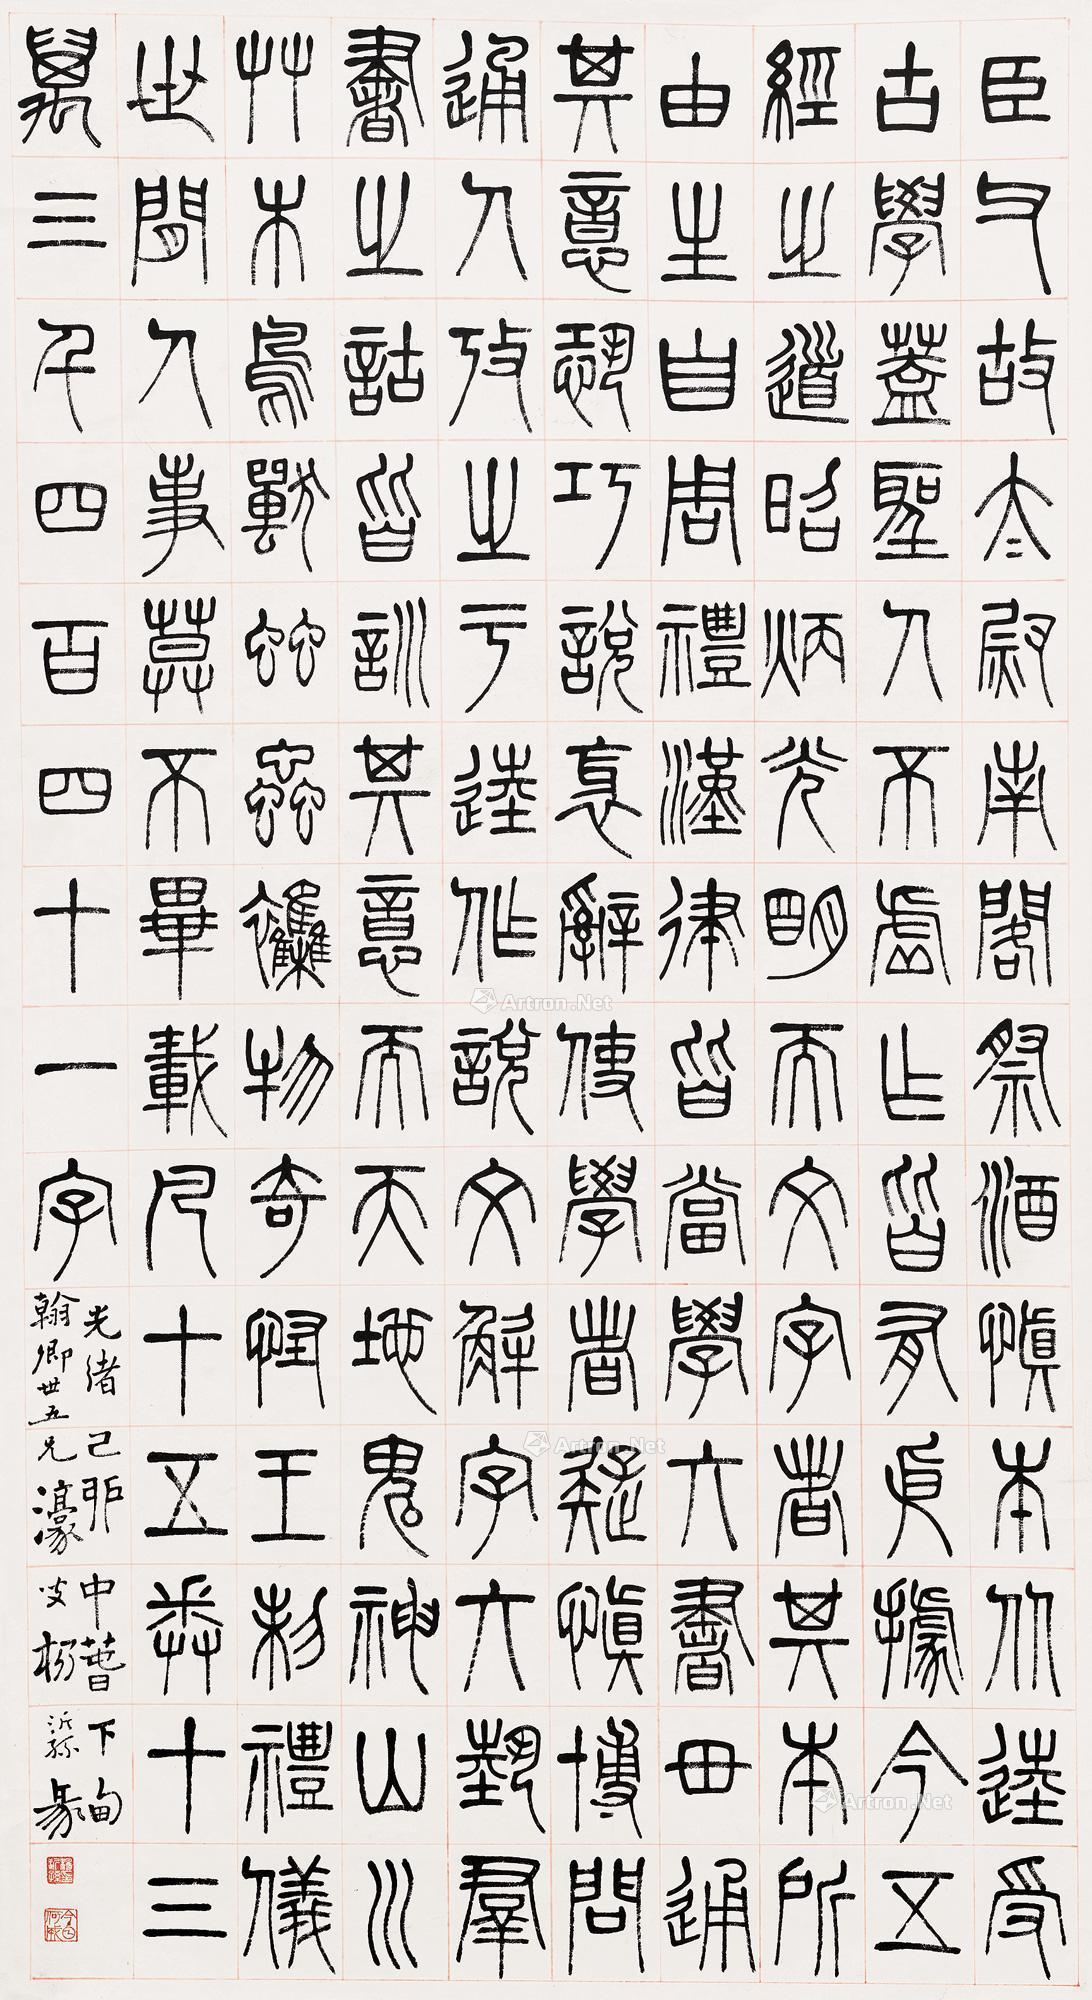 臣父故太尉南閣祭酒慎本从逵受
古學蓋聖人不虚作皆有依據今五
經之道昭炳光明而文字者其本所
由生自周禮漢律皆當學六書毌通
其意恐巧說衺辭使學者疑慎博問
通人攷之于逵作說文解字六藝羣
書之詁皆訓其意而天地鬼神山川
艸木鳥獸䖵蟲襍物奇怪王制禮儀
世間人事莫不畢載凡十五卷十三
萬三千四百四十一字
光緒己卯中春下旬
翰卿世五兄濠叟楊沂孫篆
Artron.Net
Artron.Net
Artron.Net